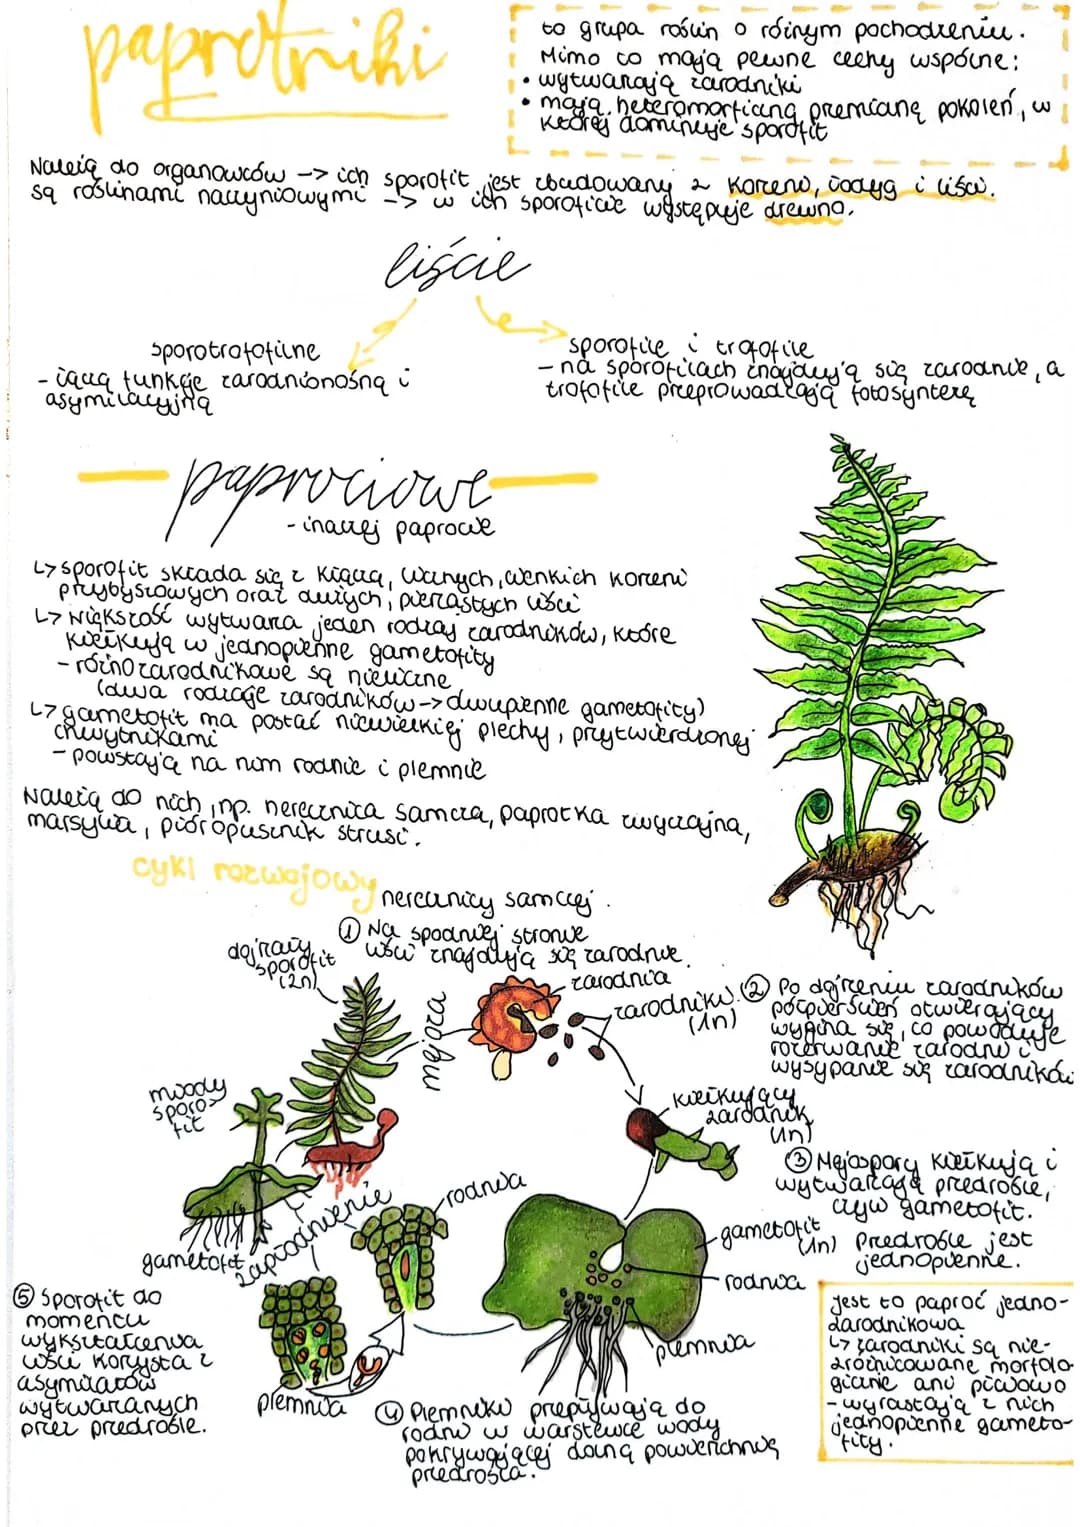 paprotniki
to grupa roślin o różnym pochodzeniu.
Mimo to mają pewne cechy wspólne:
• wytwarzają zarodniki
• mają heteromorficzną przemianę pokoleń, w
której dominuje sporofit
Należą do organowców -> ich sporofit jest zbudowany z korzeni, łodyg i liści.
są roślinami naczyniowymi -> w ich sporoficie występuje drewno.
liście
sporotrofofilne
- łączą funkcje zarodnionośną i
asymilacyjną
sporofile i trofofile
- na sporofilach znajdują się zarodnie, a
trofofile przeprowadzają fotosyntezę
paprociowe
- inaczej paprocie
↳ sporofit składa się z kłącza, licznych, cienkich korzeni
przybyszowych oraz dużych, pierzastych liści
↳ większość wytwarza jeden rodzaj zarodników, które
kiełkują w jednopienne gametofity
- różnozarodnikowe są nieliczne
(dwa rodzaje zarodników -> dwupienne gametofity)
↳ gametofit ma postać niewielkiej plechy, przytwierdzonej
chwytnikami
- powstają na nim rodnie i plemnie
Należą do nich, np. nerecznica samcza, paprotka zwyczajna,
marsylia, pióropusznik strusi.
cykl rozwojowy
nerecznicy samczej.
① Na spodniej stronie
liści znajdują się zarodnie.
dojrzały
sporofit
(2n)
mejoza
zarodnia
zarodniki
(1n)
② Po dojrzeniu zarodników
półpierścień otwierający
wygina się, co powoduje
rozerwanie zarodni i
wysypanie się zarodników
młody
sporo-
fit
kiełkujący
zarodnik
(1n)
③ Mejospory kiełkują i
wytwarzają przedrośle,
czyli gametofit.
Przedrośle jest
jednopienne.
gametofit
zapłodnienie
rodnia
gametofit
(1n)
rodnia
plemnia
plemnia
⑤ Sporofit do
momentu
wykształcenia
liści korzysta z
asymilatów
wytwarzanych
przez przedrośle.
④ Plemniki przepływają do
rodni w warstewce wody
pokrywającej dolną powierzchnię
przedrośla.
jest to paproć jedno-
zarodnikowa
↳ zarodniki są nie-
zróżnicowane morfolo-
gicznie ani płciowo
- wyrastają z nich
jednopienne gameto-
fity.